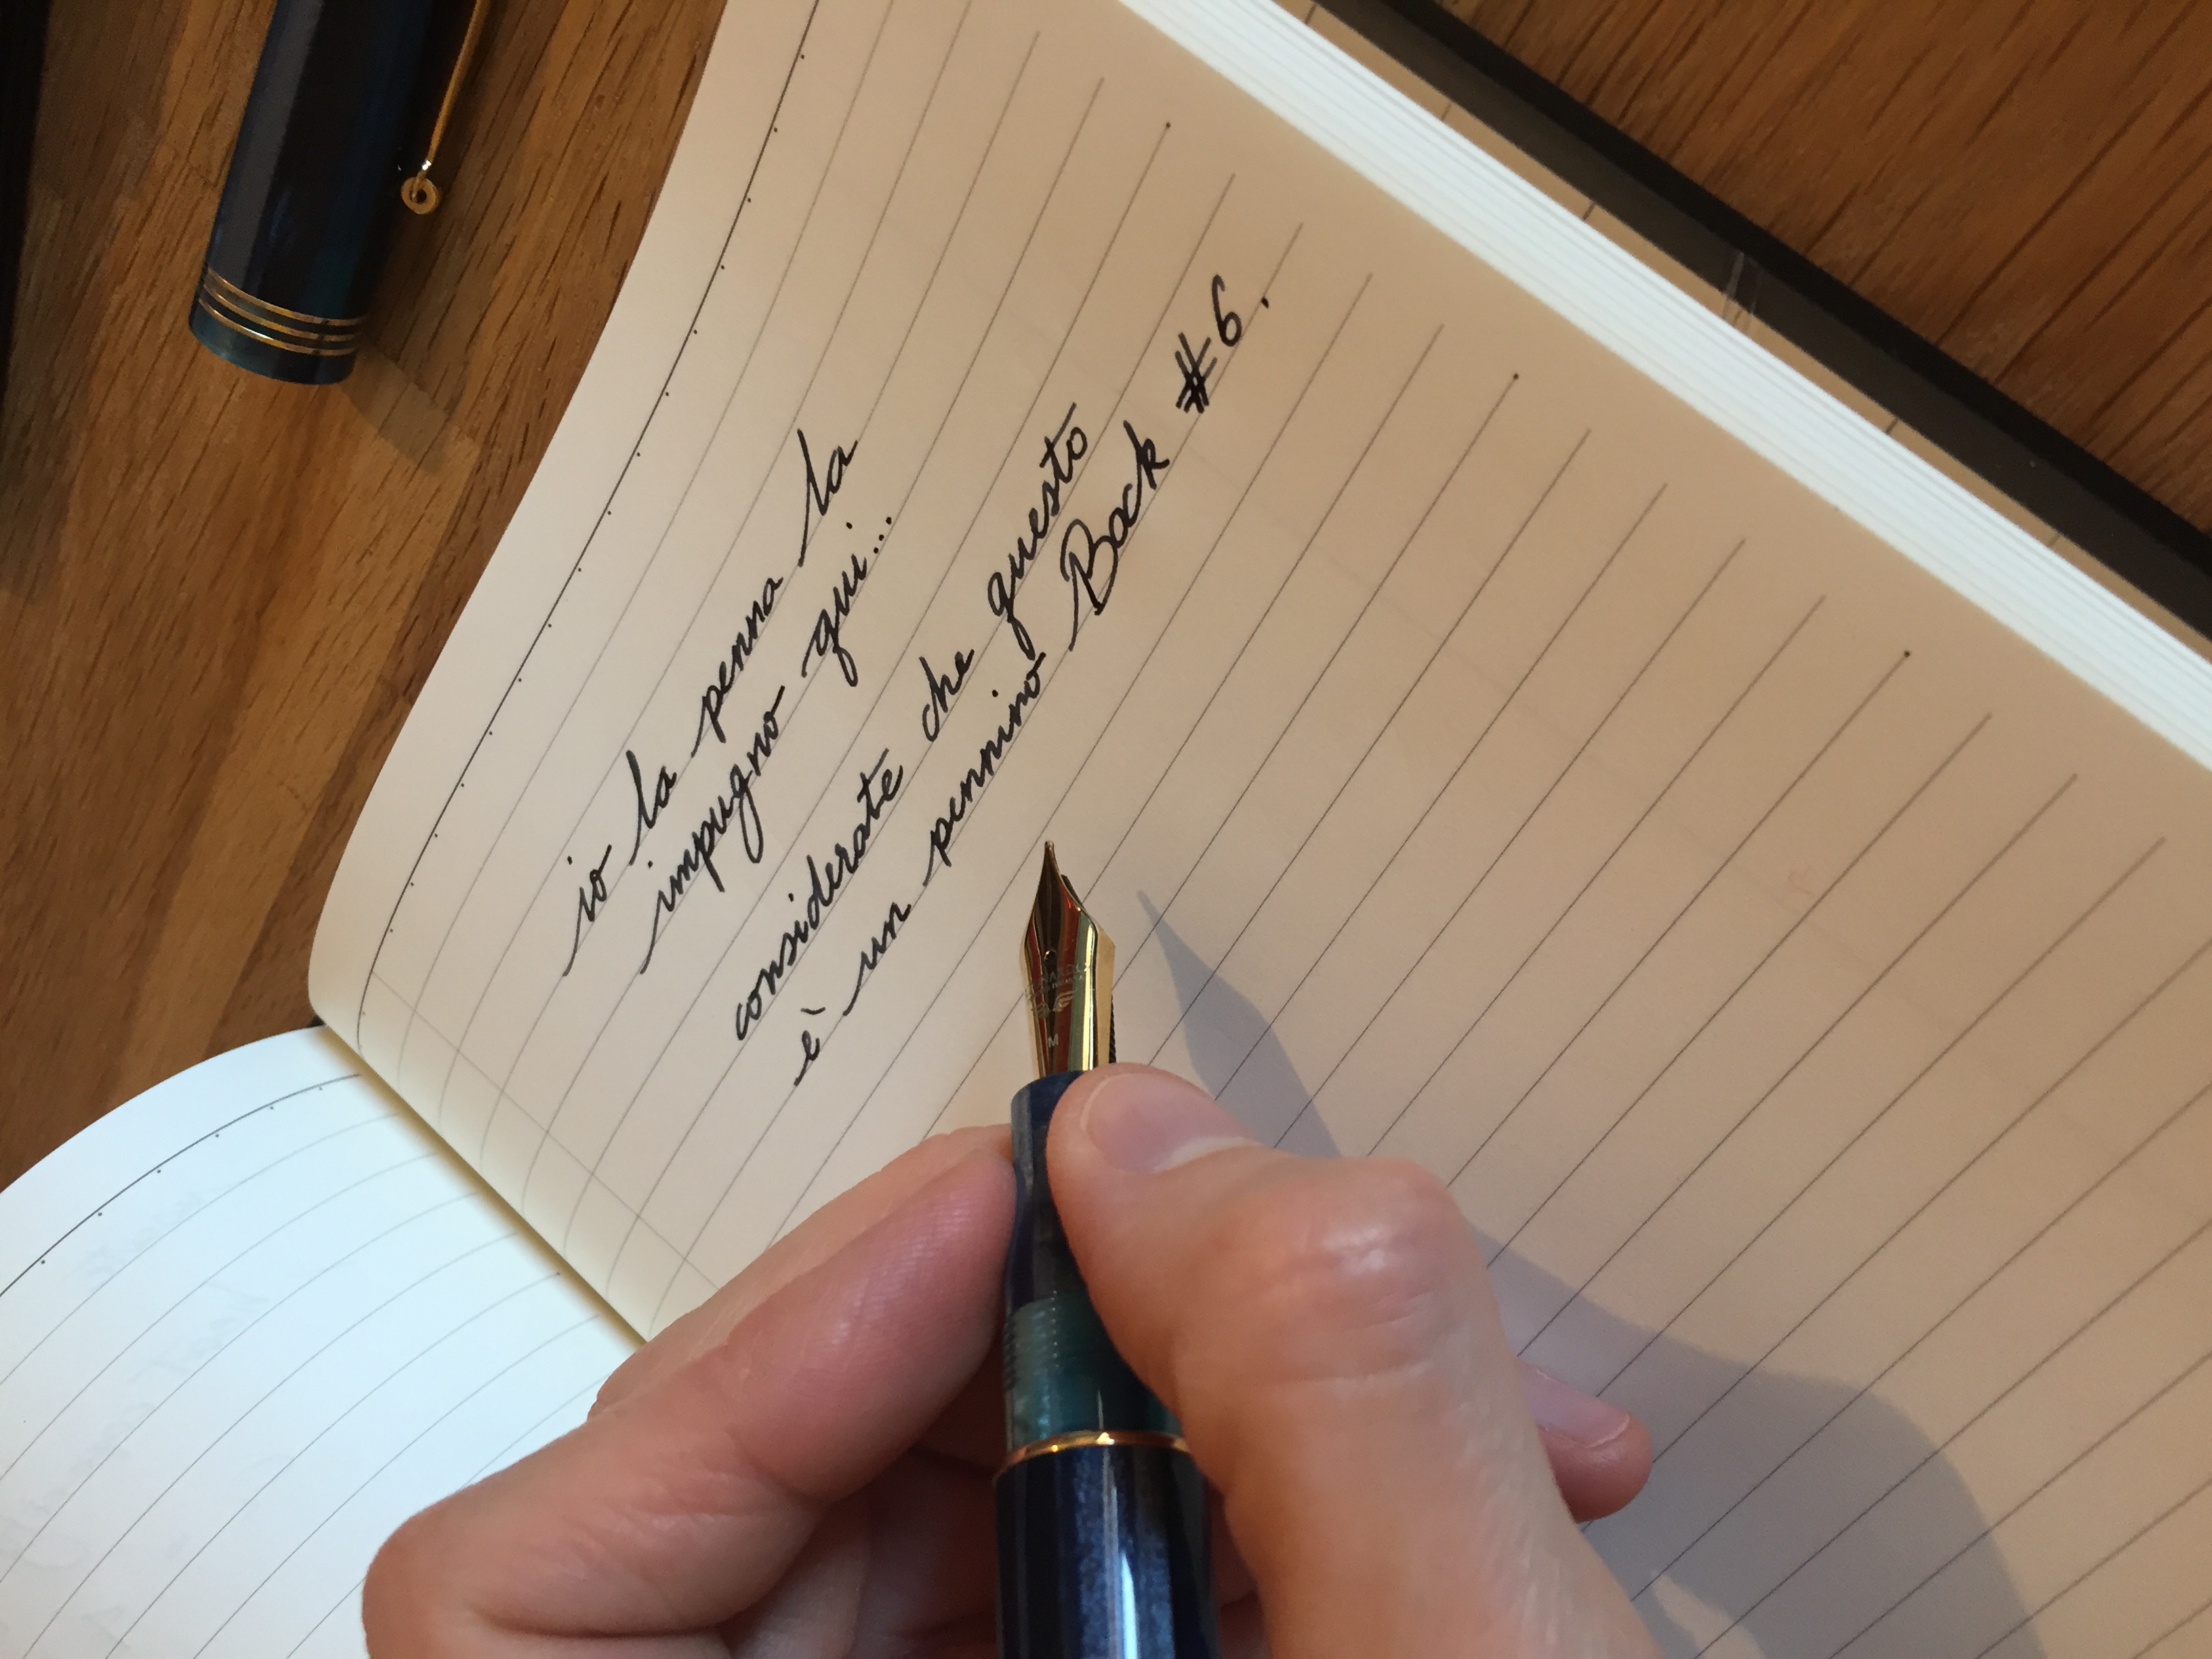 io la penna la
impugno qui...
considerate che questo
è un pennino Bock #6.
M